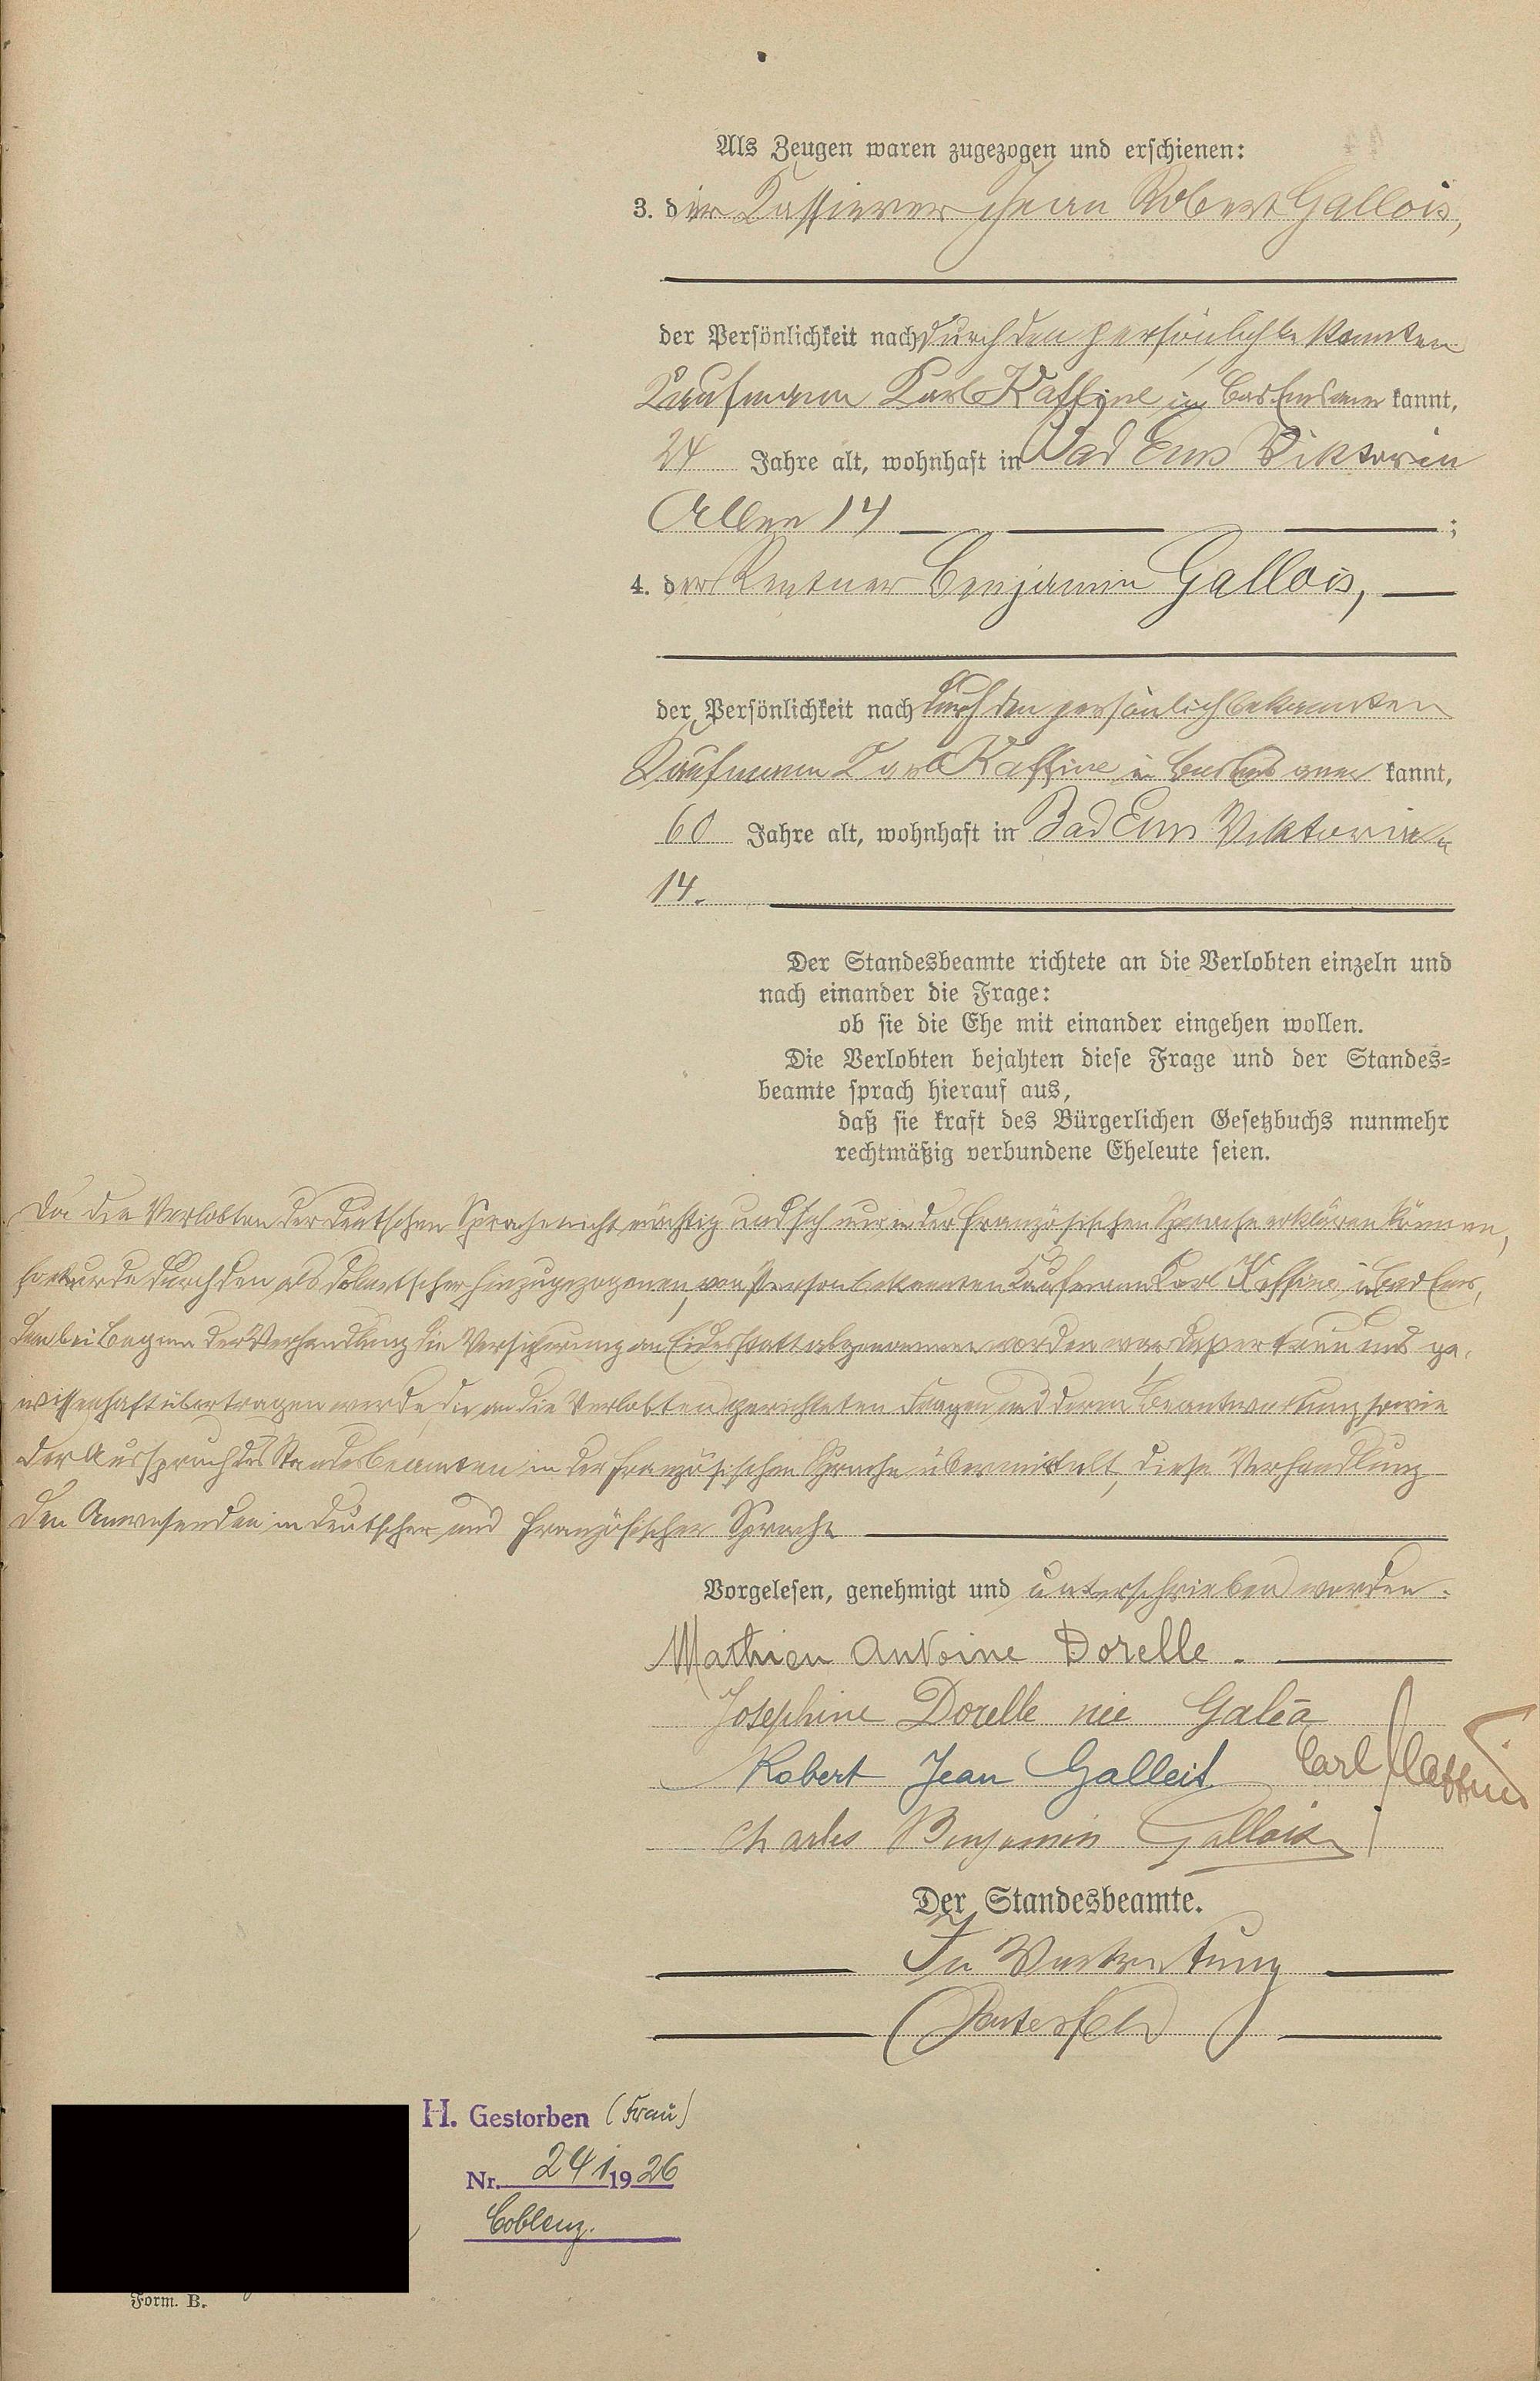 Als Zeugen waren zugezogen und erschienen:
3. der Kassierer Jean Robert Gallois,
der Persönlichkeit nach durch den persönlich bekannten
Kaufmann Karl Kaffine in Bad Ems aner kannt,
24 Jahre alt, wohnhaft in Bad Ems Viktoria
Allee 14 ;
4. der Rentner Benjamin Gallois,
der Persönlichkeit nach durch den persönlich bekannten
Kaufmann Karl Kaffine in Bad Ems aner kannt,
60 Jahre alt, wohnhaft in Bad Ems Viktoria
14.
Der Standesbeamte richtete an die Verlobten einzeln und
nach einander die Frage:
ob sie die Ehe mit einander eingehen wollen.
Die Verlobten bejahten diese Frage und der Standes=
beamte sprach hierauf aus,
daß sie kraft des Bürgerlichen Gesetzbuchs nunmehr
rechtmäßig verbundene Eheleute seien.
Da die Verlobten der deutschen Sprache nicht mächtig und sich nur in der französischen Sprache erklären können,
so wurde durch den als Dolmetscher hinzugezogenen, von Person bekannten Kaufmann Karl Kaffine in Bad Ems,
dem bei Beginn der Verhandlung die Versicherung an Eidesstatt abgenommen worden war, daß er treu und ge-
wissenhaft übertragen werde, die an die Verlobten gerichteten Fragen und deren Beantwortung sowie
der Ausspruch des Standesbeamten in der französischen Sprache übermittelt, diese Verhandlung
den Anwesenden in deutscher und französischer Sprache
Vorgelesen, genehmigt und unterschrieben worden.
Mathieu Antoine Dorelle.
Josephine Dorelle née Galéa
Robert Jean Gallois Carl Kaffine
Charles Benjamin Gallois
Der Standesbeamte.
In Vertretung
H. Gestorben (Frau)
Nr. 241 1926
Coblenz.
Form. B.